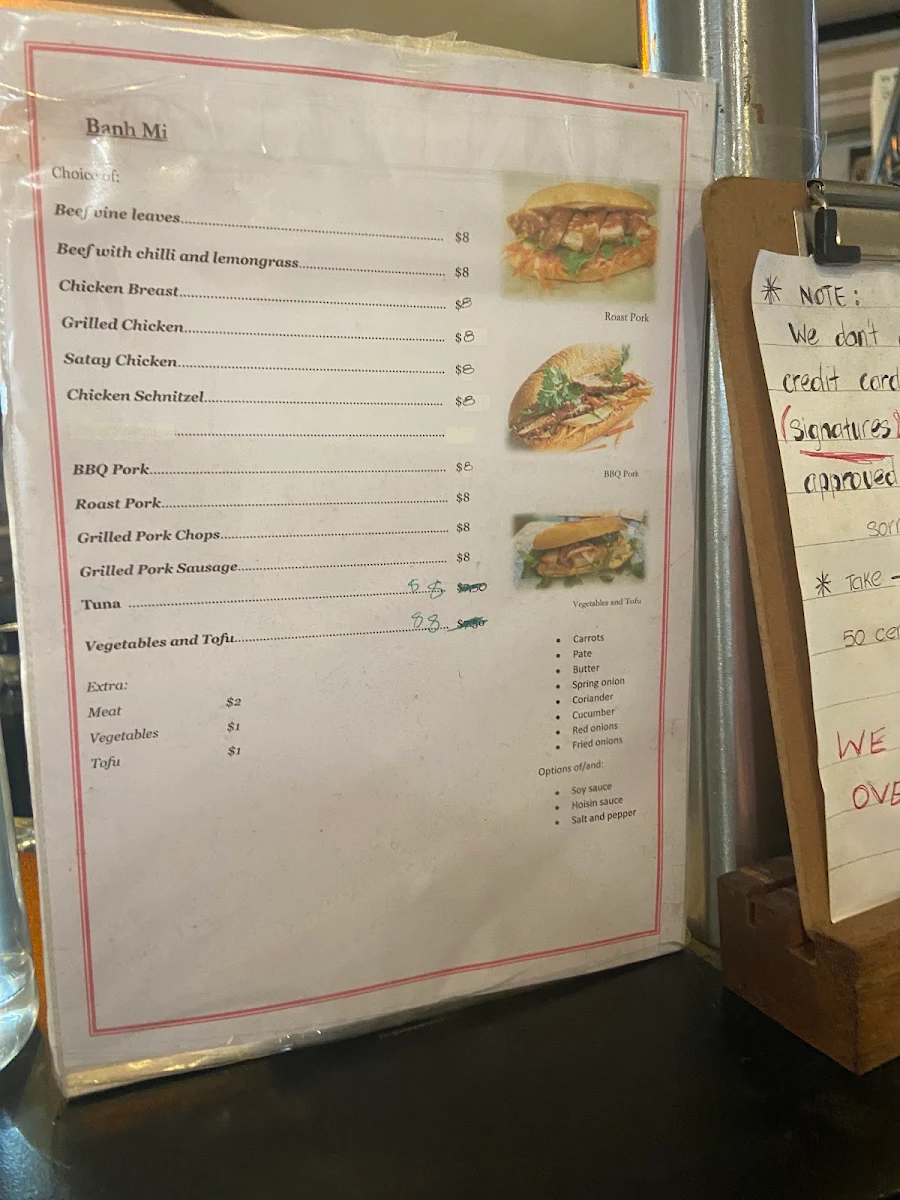 Banh Mi
Choice of:
Beef vine leaves........ $8
Beef with chilli and lemongrass........ $8
Chicken Breast........ $8
Grilled Chicken........ $8
Satay Chicken........ $8
Chicken Schnitzel........ $8
BBQ Pork........ $8
Roast Pork........ $8
Grilled Pork Chops........ $8
Grilled Pork Sausage........ $8
Tuna ........ $8
Vegetables and Tofu........ $8 $7.50
Extra:
Meat $2
Vegetables $1
Tofu $1
Roast Pork
BBQ Pork
Vegetables and Tofu
• Carrots
• Pate
• Butter
• Spring onion
• Coriander
• Cucumber
• Red onions
• Fried onions
Options of/and:
• Soy sauce
• Hoisin sauce
• Salt and pepper
* NOTE:
We don't
credit card
(signatures)
approved
* Take -
WE